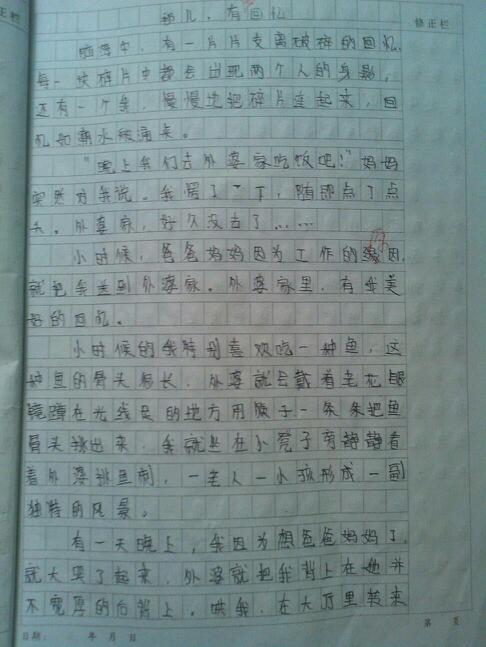 那儿，有回忆
修正栏
脑海中，有一片片支离破碎的回忆，
每一块碎片中都会出现两个人的身影，
还有一个家，慢慢地把碎片连起来，回
忆如潮水般涌来。
“晚上我们去外婆家吃饭吧！”妈妈
突然对我说。我愣了一下，随即点了点
头。外婆家，好久没去了……
小时候，爸爸妈妈因为工作的缘因，
就把我送到外婆家。外婆家里，有我美
好的回忆。
小时候的我特别喜欢吃一种鱼，这
种鱼的骨头很长，外婆就会戴着老花眼
镜蹲在光线足的地方用筷子一条条把鱼
骨头挑出来，我就坐在小凳子旁静静看
着外婆挑鱼刺，一老人一小孩形成一副
独特的风景。
有一天晚上，我因为想爸爸妈妈了，
就大哭了起来，外婆就把我背上在她并
不宽厚的后背上。哄我，在大厅里转来
日期： 年 月 日
第 页